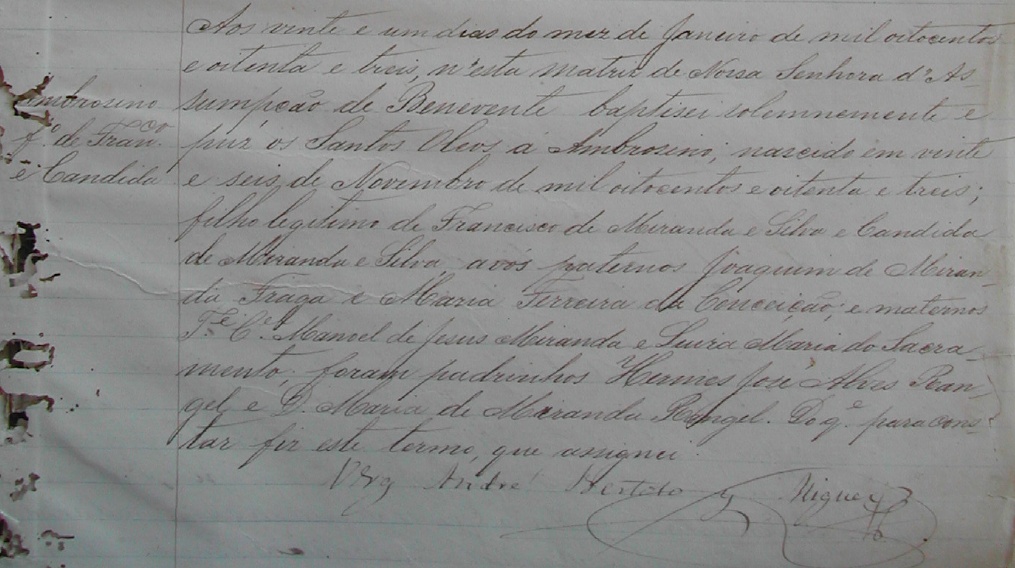 Aos vinte e um dias do mez de Janeiro de mil oitocentos
e oitenta e treis, n'esta matriz de Nossa Senhora d'As-
sumpção de Benevente baptisei solemnemente e
puz os Santos Oleos á Ambrosino; nascido em vinte
e seis de Novembro de mil oitocentos e oitenta e treis;
filho legitimo de Francisco de Miranda e Silva e Candida
de Miranda e Silva, avós paternos Joaquim de Miran-
da Fraga e Maria Ferreira da Conceição; e maternos
Te. Cel. Manoel de Jesus Miranda e Luiza Maria do Sacra-
mento; foram padrinhos Hermes José Alves Ran-
gel, e D. Maria de Miranda Rangel. Do q.e para cons-
tar fiz este termo, que assignei.
Vig André
Ambrosino
f.o de Fran.co
e Candida